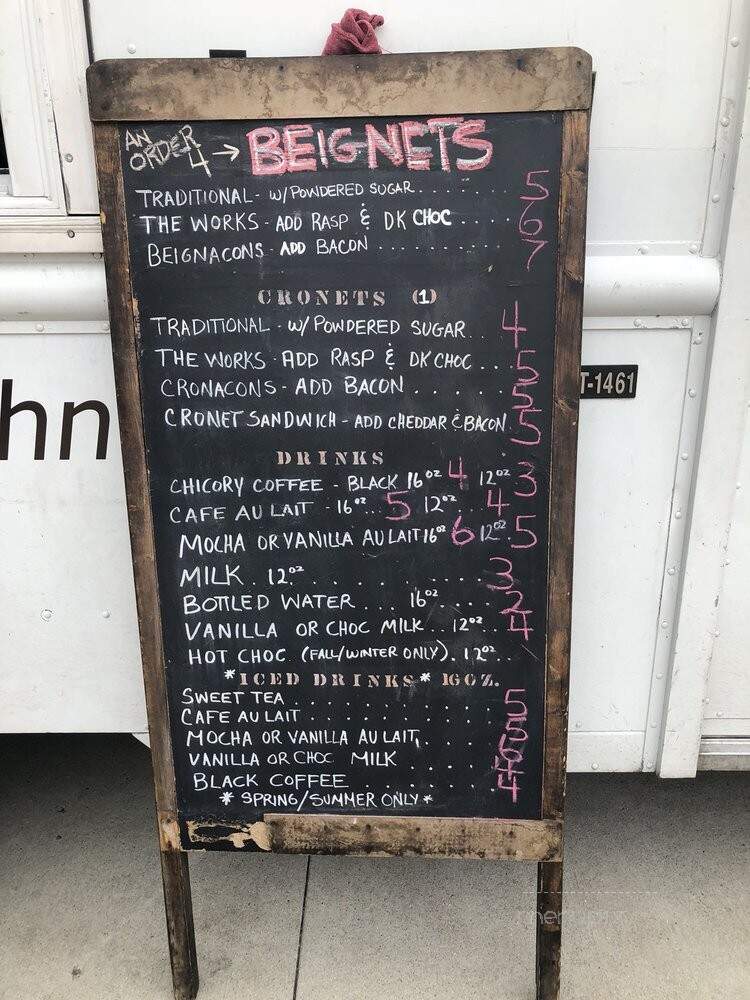 AN ORDER 4 → BEIGNETS
TRADITIONAL - W/ POWDERED SUGAR........ 5
THE WORKS - ADD RASP & DK CHOC.... 6
BEIGNACONS - ADD BACON.......... 7
CRONETS (1)
TRADITIONAL - W/ POWDERED SUGAR... 4
THE WORKS - ADD RASP & DK CHOC... 5
CRONACONS - ADD BACON..... 5
CRONET SANDWICH - ADD CHEDDAR & BACON. 5
DRINKS
CHICORY COFFEE - BLACK 16oz 4 12oz 3
CAFE AU LAIT - 16oz... 5 12oz... 4
MOCHA OR VANILLA AU LAIT 16oz 6 12oz 5
MILK. 12oz........... 3
BOTTLED WATER... 16oz..... 2
VANILLA OR CHOC MILK. 12oz... 4
HOT CHOC (FALL/WINTER ONLY). 12oz..
*ICED DRINKS* 16OZ.
SWEET TEA............ 5
CAFE AU LAIT........... 5
MOCHA OR VANILLA AU LAIT..... 6
VANILLA OR CHOC MILK.....
BLACK COFFEE......... 4
* SPRING/SUMMER ONLY *
hn
T-1461